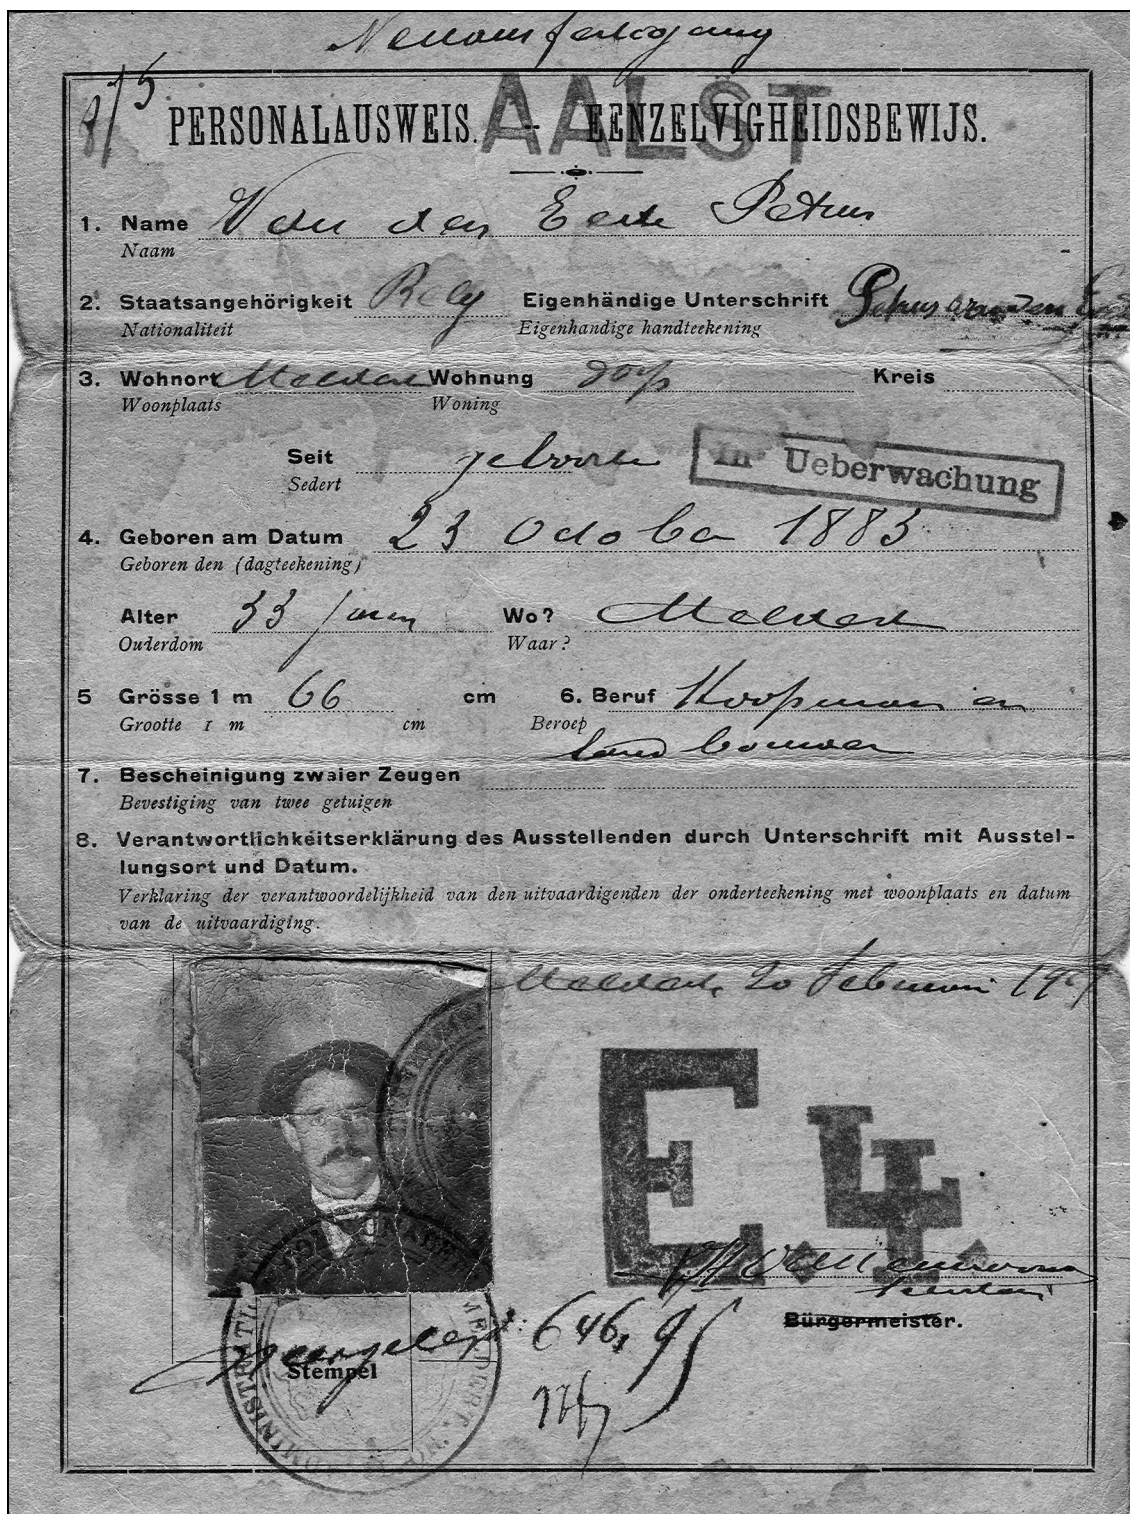 AALST
PERSONALAUSWEIS. - EENZELVIGHEIDSBEWIJS.
1. Name Van den Eede Petrus
Naam
2. Staatsangehörigkeit Belg Eigenhändige Unterschrift Petrus van den
Nationaliteit Eigenhandige handteekening
3. Wohnort Meldert Wohnung dorp Kreis
Woonplaats Woning
Seit geboorte In Ueberwachung
Sedert
4. Geboren am Datum 23 October 1883
Geboren den (dagteekening)
Alter 33 jaren Wo? Meldert
Ouderdom Waar?
5 Grösse 1 m 66 cm 6. Beruf Koopman en
Grootte 1 m cm Beroep landbouwer
7. Bescheinigung zwaier Zeugen
Bevestiging van twee getuigen
8. Verantwortlichkeitserklärung des Ausstellenden durch Unterschrift mit Ausstel-
lungsort und Datum.
Verklaring der verantwoordelijkheid van den uitvaardigenden der onderteekening met woonplaats en datum
van de uitvaardiging.
Meldert, 20 Februari
E.4.
Bürgermeister.
646,
Stempel